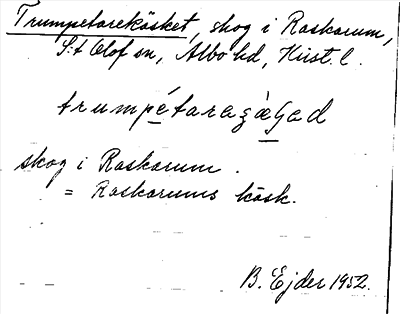 Trumpetarekösket, skog i Raskarum,
S:t Olof sn, Albo hd, Krist. l.
skog i Raskarum.
= Raskarums kösk.
B. Ejder 1952.